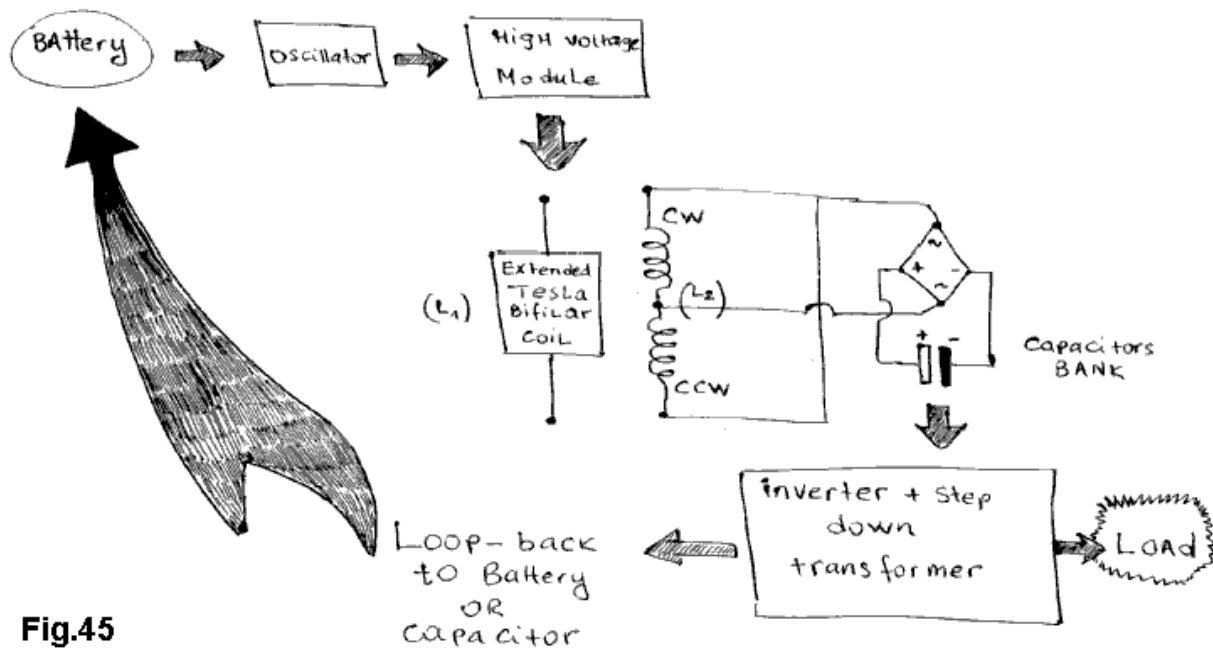 BAttery
Oscillator
HigH Voltage
Module
CW
(L1)
Extended
Tesla
Bifilar
COIL
(L2)
CCW
~
+ -
~
+ -
Capacitors
BANK
inverter + step
down
transformer
LOAD
Loop-back
to Battery
OR
Capacitor
Fig.45